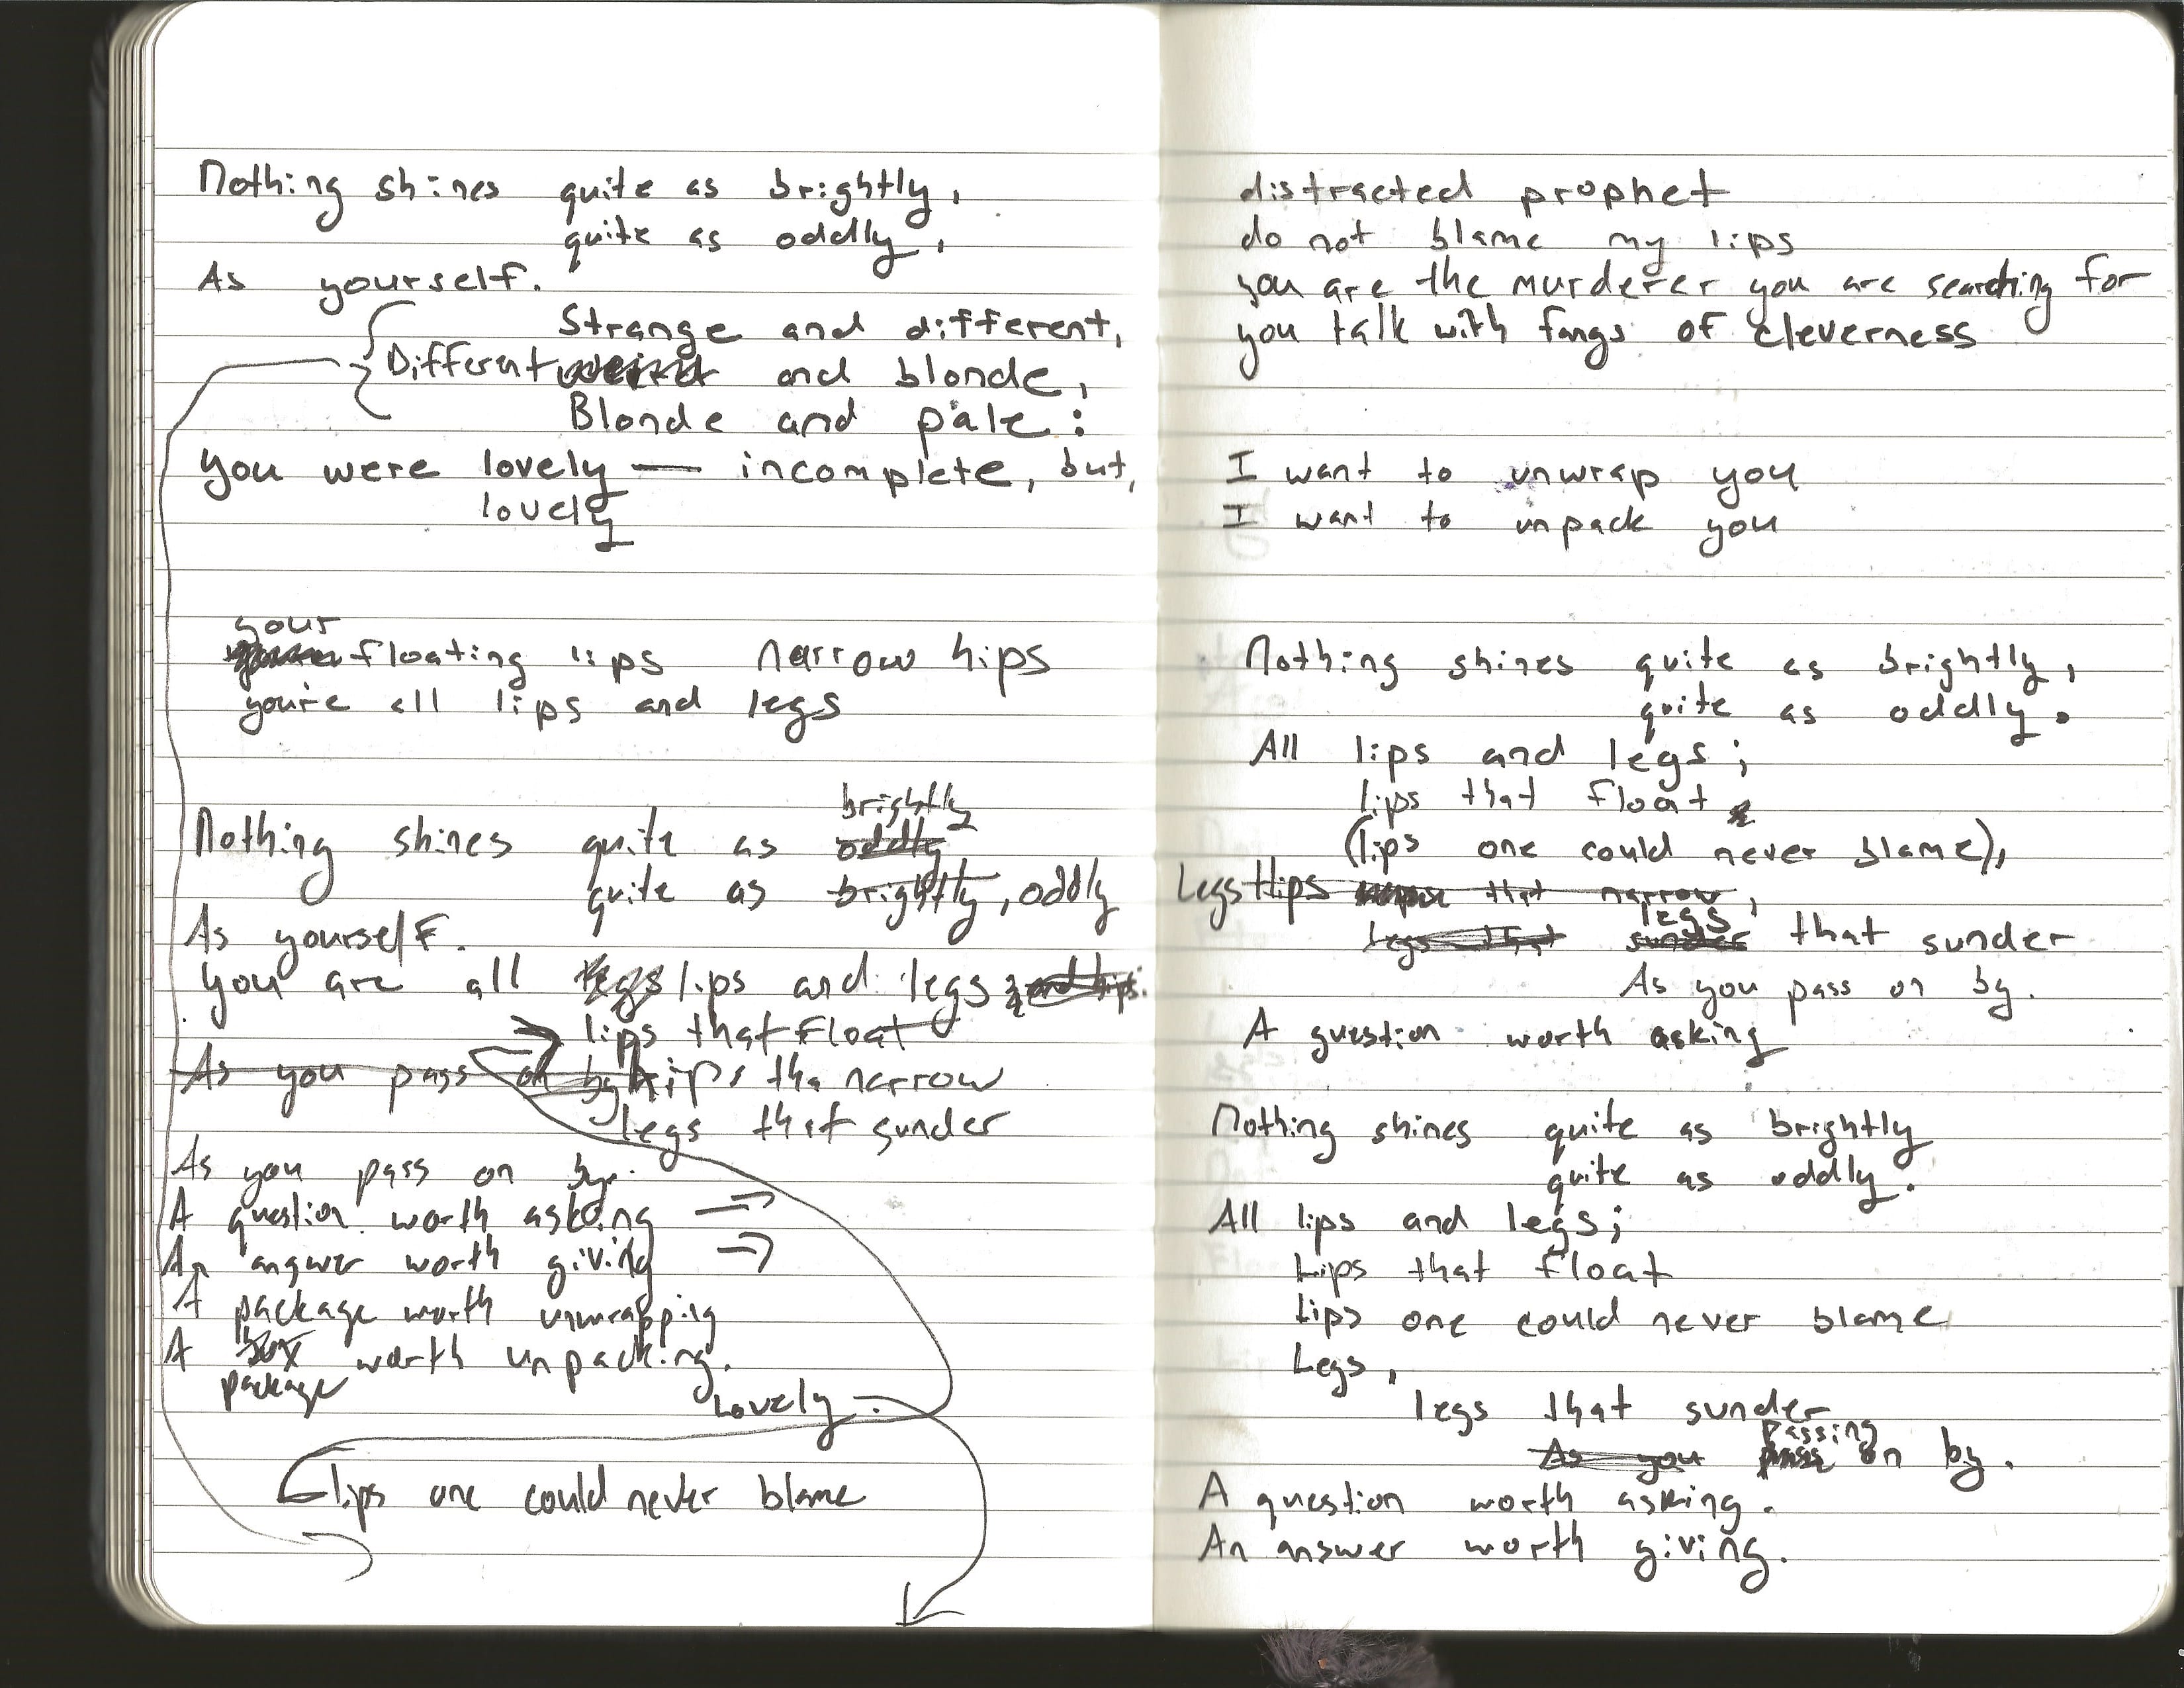 Nothing shines quite as brightly,
quite as oddly,
As yourself.
Strange and different,
Different weird and blonde,
Blonde and pale:
you were lovely — incomplete, but,
lovely
your
floating lips narrow hips
you're all lips and legs
brightly
Nothing shines quite as oddly
quite as brightly, oddly
As yourself.
you are all legs lips and legs; and hips.
lips that float
As you pass on by hips tha narrow
legs that sunder
As you pass on by.
A question worth asking
An answer worth giving
A package worth unwrapping
A box worth unpacking.
package
Lovely.
lips one could never blame
distracted prophet
do not blame my lips
you are the murderer you are searching for
you talk with fangs of cleverness
I want to unwrap you
I want to unpack you
Nothing shines quite as brightly,
quite as oddly.
All lips and legs;
lips that float
(lips one could never blame),
Legs Hips that narrow,
legs
Legs that sunder that sunder
As you pass on by.
A question worth asking
Nothing shines quite as brightly
quite as oddly.
All lips and legs;
Lips that float
Lips one could never blame
Legs,
legs that sunder
passing
As you pass on by.
A question worth asking.
An answer worth giving.